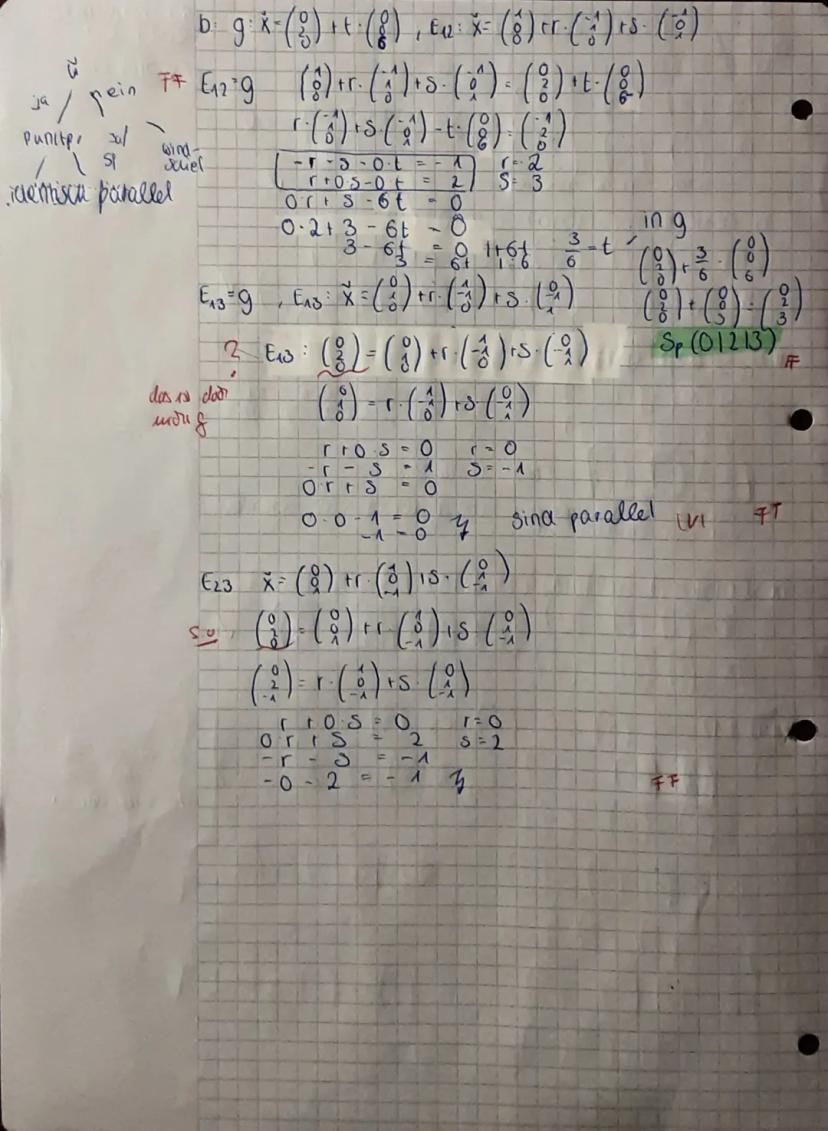 b: g: x⃗ = (0 2 0) + t · (0 0 6) , E12: x⃗ = (1 0 0) + r · (-1 1 0) + s · (-1 0 1)
ja nein
punktp.
identisch parallel
FF E12 = g (1 0 0) + r · (-1 1 0) + s · (-1 0 1) = (0 2 0) + t · (0 0 6)
r · (-1 1 0) + s · (-1 0 1) - t · (0 0 6) = (-1 2 0)
-r - s - 0·t = -1 r = 2
r + 0·s - 0t = 2 s = 3
0·r + s - 6t = 0
0·2 + 3 - 6t = 0
3 - 6t = 0 |+6t 3/6 = t
3 = 6t |:6
in g
(0 2 0) + 3/6 · (0 0 6)
(0 2 0) + (0 0 3) = (0 2 3)
Sp (0|2|3) F
E13 = g , E13: x⃗ = (0 1 0) + r · (1 -1 0) + s · (0 -1 1)
? E13: (0 2 0) = (0 1 0) + r · (1 -1 0) + s · (0 -1 1)
das is doch
(0 1 0) = r · (1 -1 0) + s · (0 -1 1)
r + 0·s = 0 r = 0
-r - s = 1 s = -1
0·r + s = 0
0·0 - 1 = 0 ↯ sind parallel FF
-1 = 0
E23 x⃗ = (0 0 1) + r · (1 0 -1) + s · (0 1 -1)
s.o. (0 2 0) = (0 0 1) + r · (1 0 -1) + s · (0 1 -1)
(0 2 -1) = r · (1 0 -1) + s · (0 1 -1)
r + 0·s = 0 r = 0
0·r + s = 2 s = 2
-r - s = -1
-0 - 2 = -1 ↯ FF